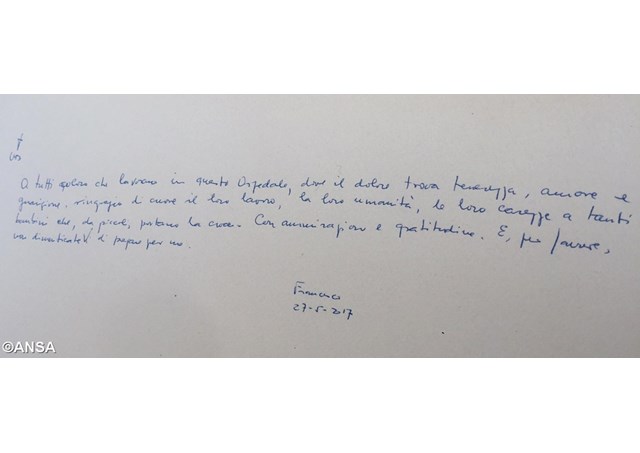 A tutti coloro che lavorano in questo Ospedale, dove il dolore trova tenerezza, amore e
guarigione, ringrazio di cuore il loro lavoro, la loro umanità, le loro carezze a tanti
bambini che, da piccoli, portano la croce. Con ammirazione e gratitudine. E, per favore,
non dimenticatevi di pregare per me.
Francesco
27-5-2017
©ANSA